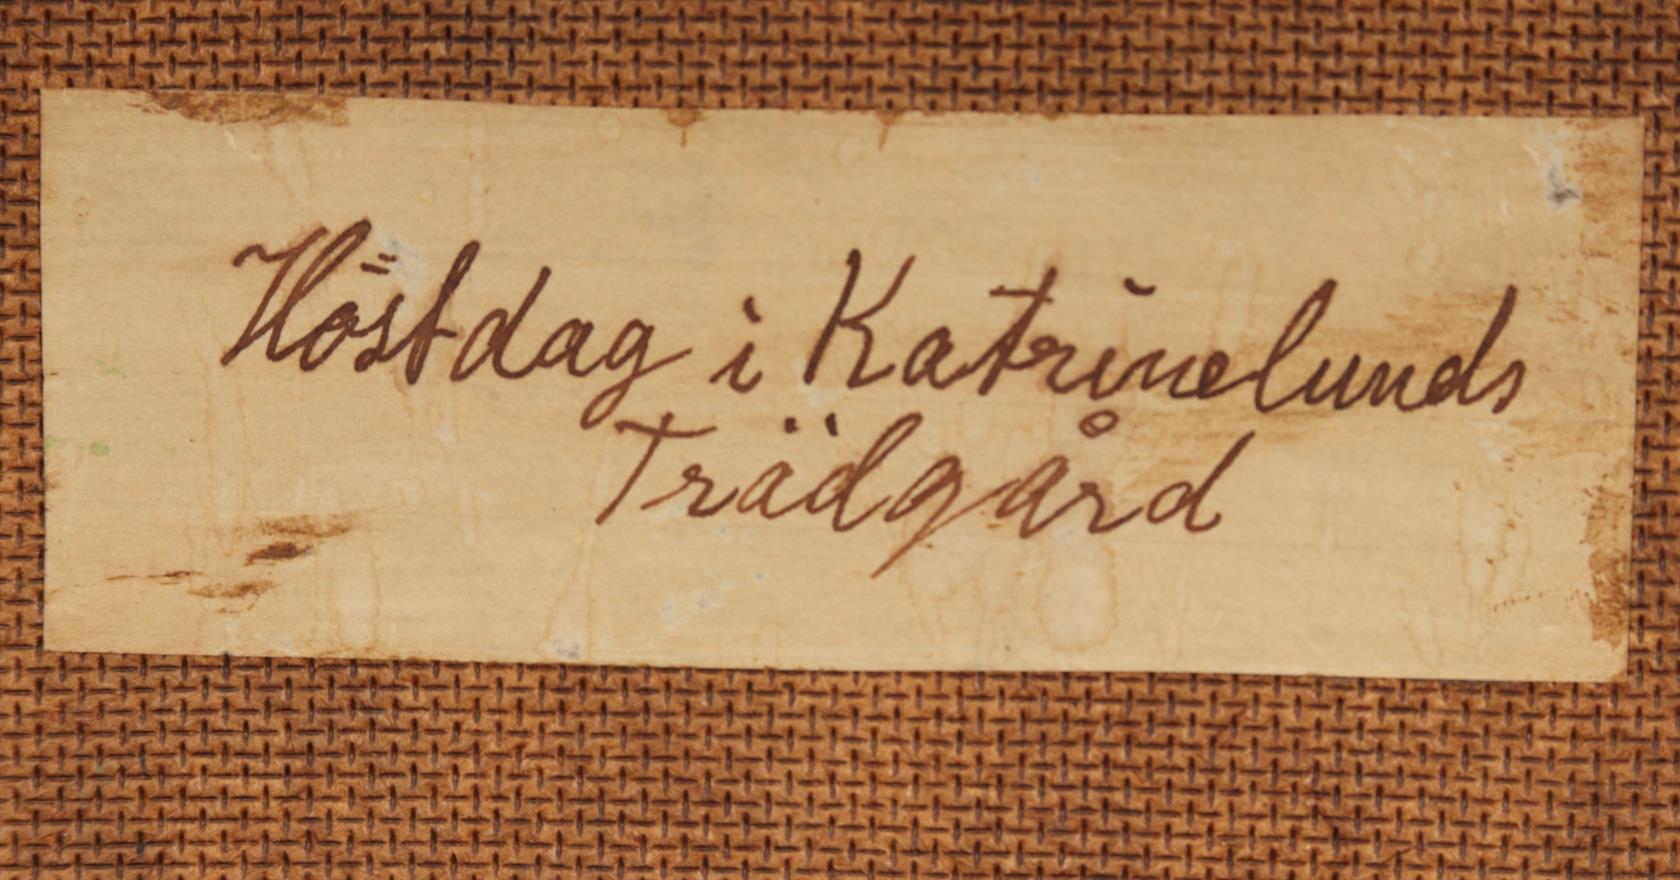 Höstdag i Katrinelunds
Trädgård